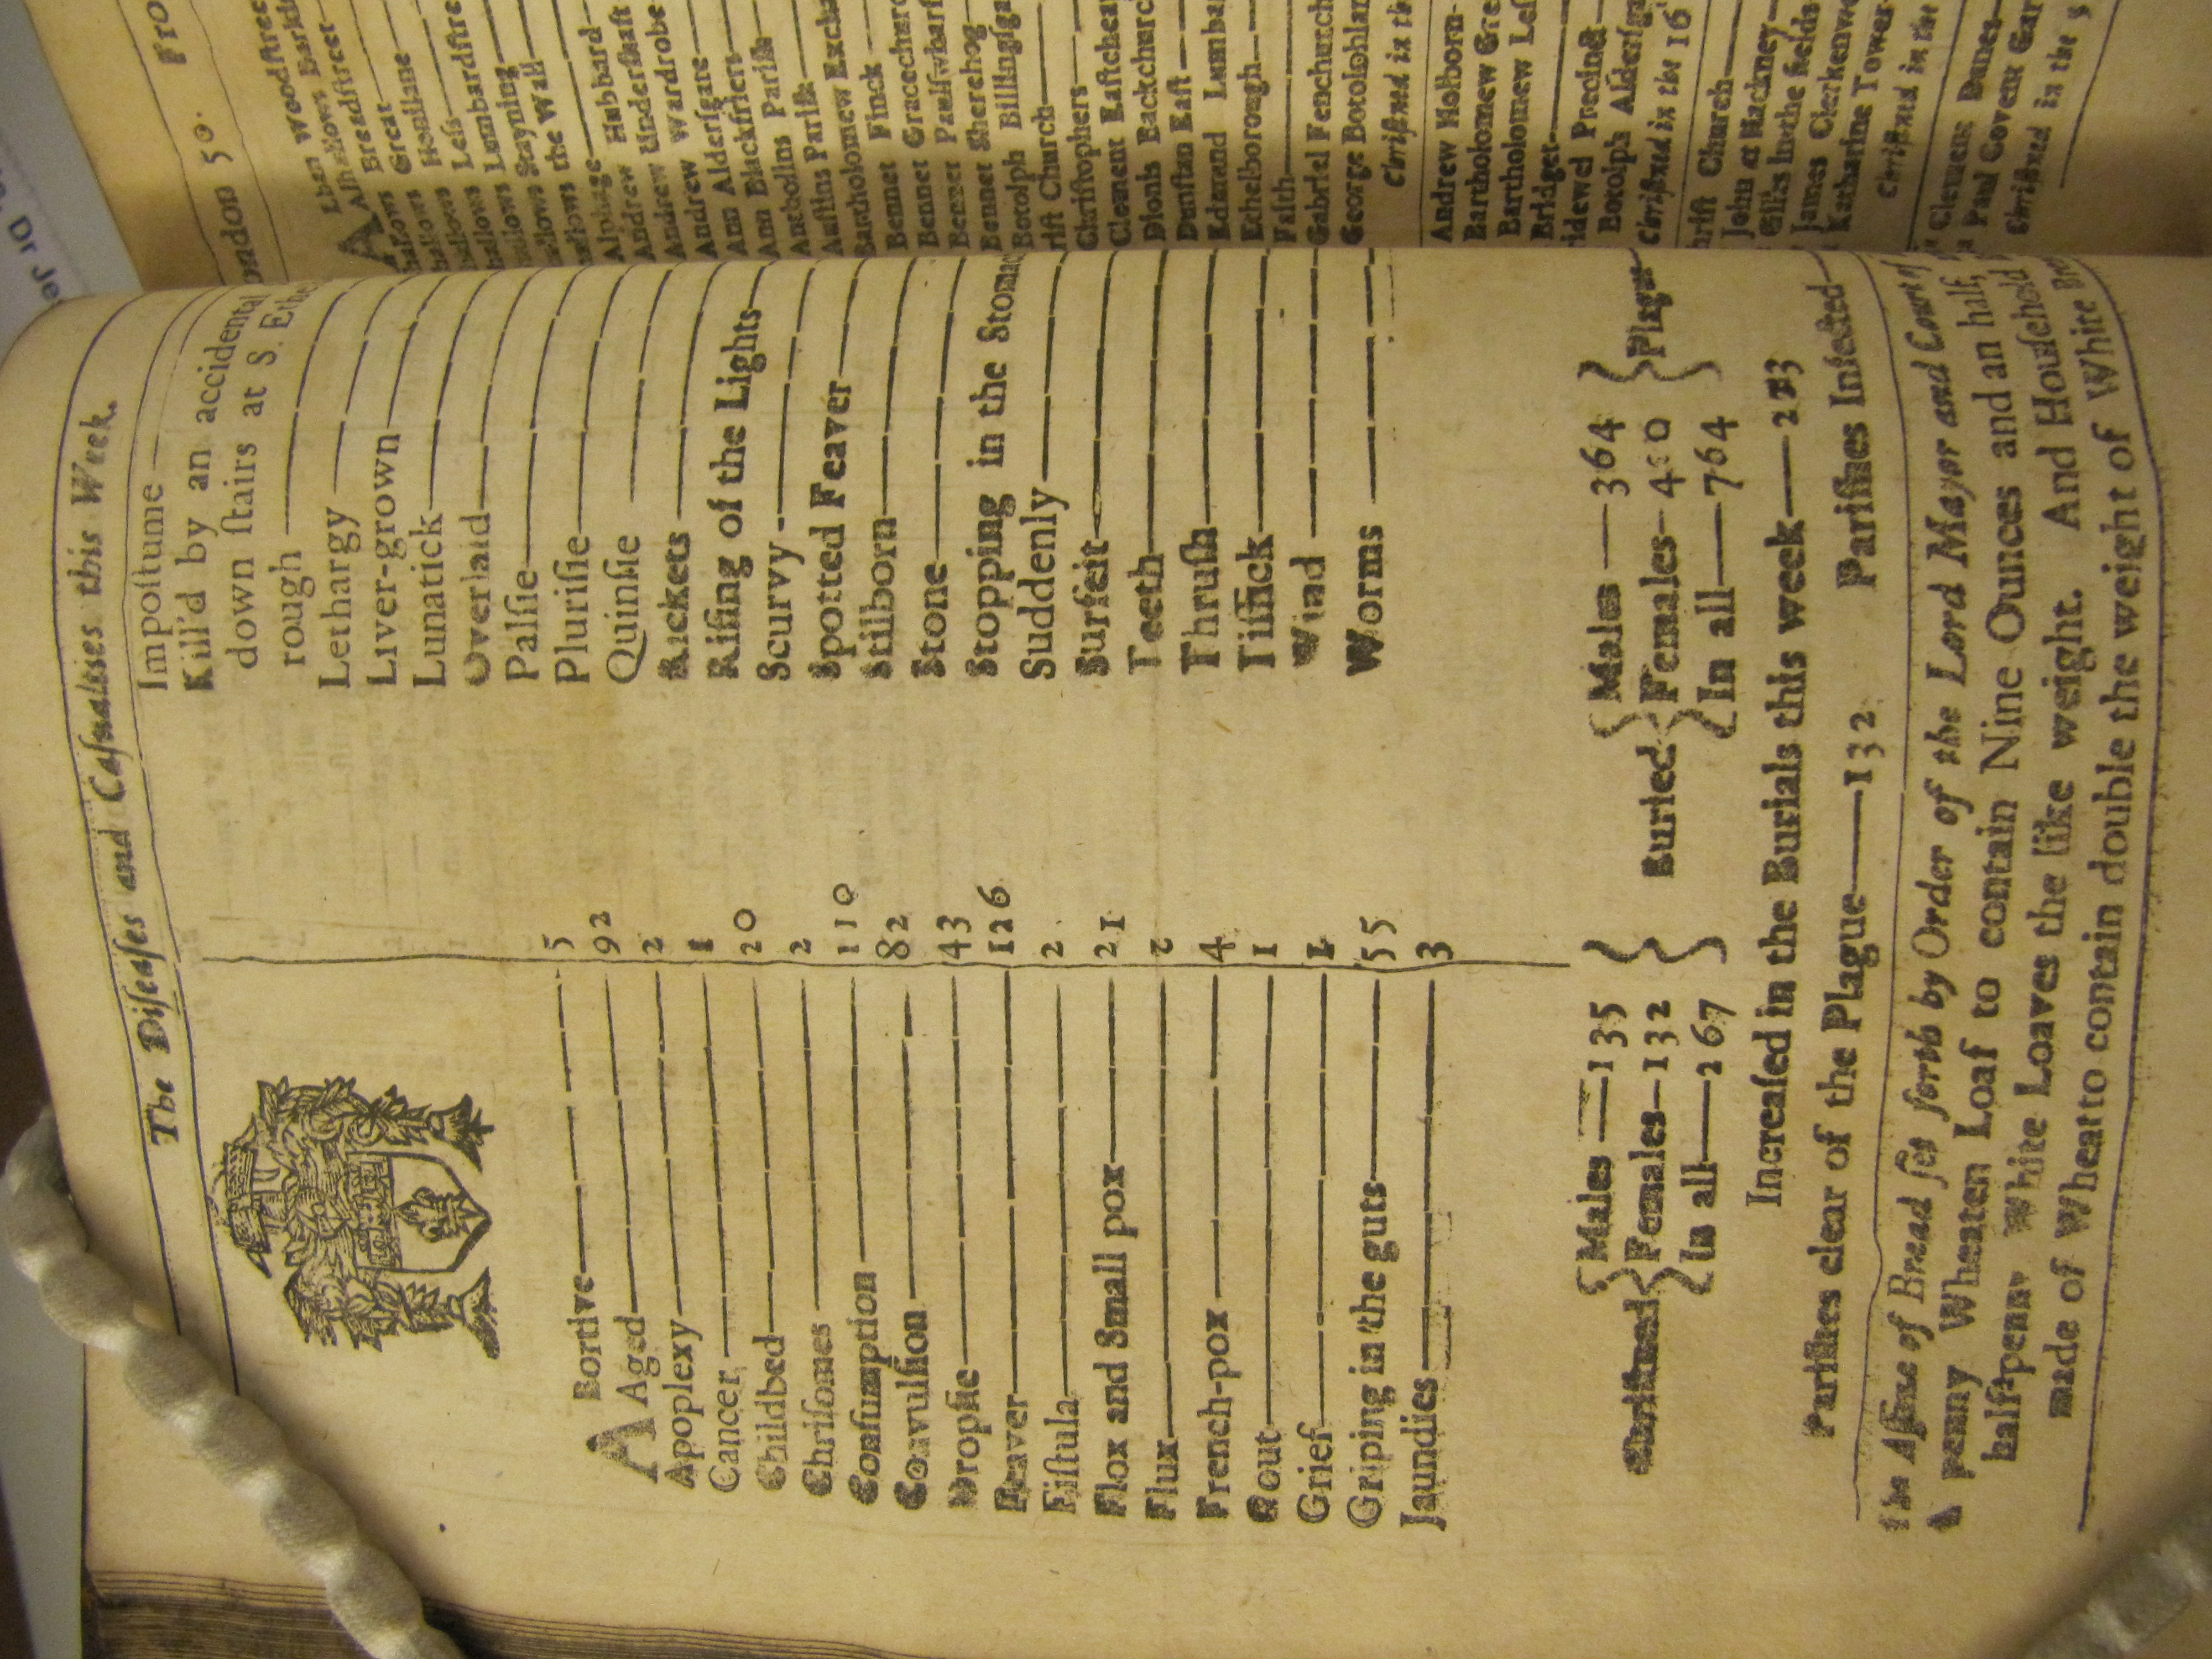 The Diſeaſes and Caſualties this Week.
ABortive 5
Aged 92
Apoplexy 2
Cancer 1
Childbed 20
Chriſomes 2
Conſumption 110
Convulſion 82
Dropſie 43
Feaver 126
Fiſtula 2
Flox and Small pox 21
Flux 2
French-pox 4
Gout 1
Grief 1
Griping in the guts 55
Jaundies 3
Impoſtume
Kill'd by an accidental
down ſtairs at S. Ethe
rough
Lethargy
Liver-grown
Lunatick
Overlaid
Palſie
Pluriſie
Quinſie
Rickets
Riſing of the Lights
Scurvy
Spotted Feaver
Stilborn
Stone
Stopping in the Stomac
Suddenly
Surfeit
Teeth
Thruſh
Tiſſick
Wind
Worms
Chriſtned { Males 135 Females 132 In all 267 } Buried { Males 364 Females 400 In all 764 } Plague
Increaſed in the Burials this week 213
Pariſhes clear of the Plague 132 Pariſhes Infected
The Aſſize of Bread ſet forth by Order of the Lord Mayor and Court of
A penny Wheaten Loaf to contain Nine Ounces and an half,
half-penny White Loaves the like weight. And Houſehold
made of Wheat to contain double the weight of White
ondon 50. Fro
Lban Woodſtree
Alhallows Barkin
A Breadſtreet
hallows Great
hallows Honilane
hallows Leſs
hallows Lumbardſtre
hallows Stayning
hallows the Wall
Alphage
Andrew Hubbard
Andrew Underſhaft
Andrew Wardrobe
Ann Alderſgate
Ann Blackfriers
Antholins Pariſh
Auſtins Pariſh
Bartholomew Excha
Bennet Finck
Bennet Gracechurc
Bennet Paulſwharf
Bennet Sherehog
Botolph Billingſga
rift Church
Chriſtophers
Clement Eaſtcheap
Dionis Backchurch
Dunſtan Eaſt
Edmund Lumbar
Ethelborough
Faith
Gabriel Fenchurch
George Botolphlan
Chriſtned in th
Andrew Holborn
Bartholomew Gre
Bartholomew Leſ
Bridget
idewel Precinct
Botolph Alderſga
Chriſtned in the 16
hriſt Church
John at Hackney
Giles in the fields
James Clerkenwe
Katharine Tower
Chriſtned in the
Clement Danes
Paul Covent Gar
Chriſtned in the 5